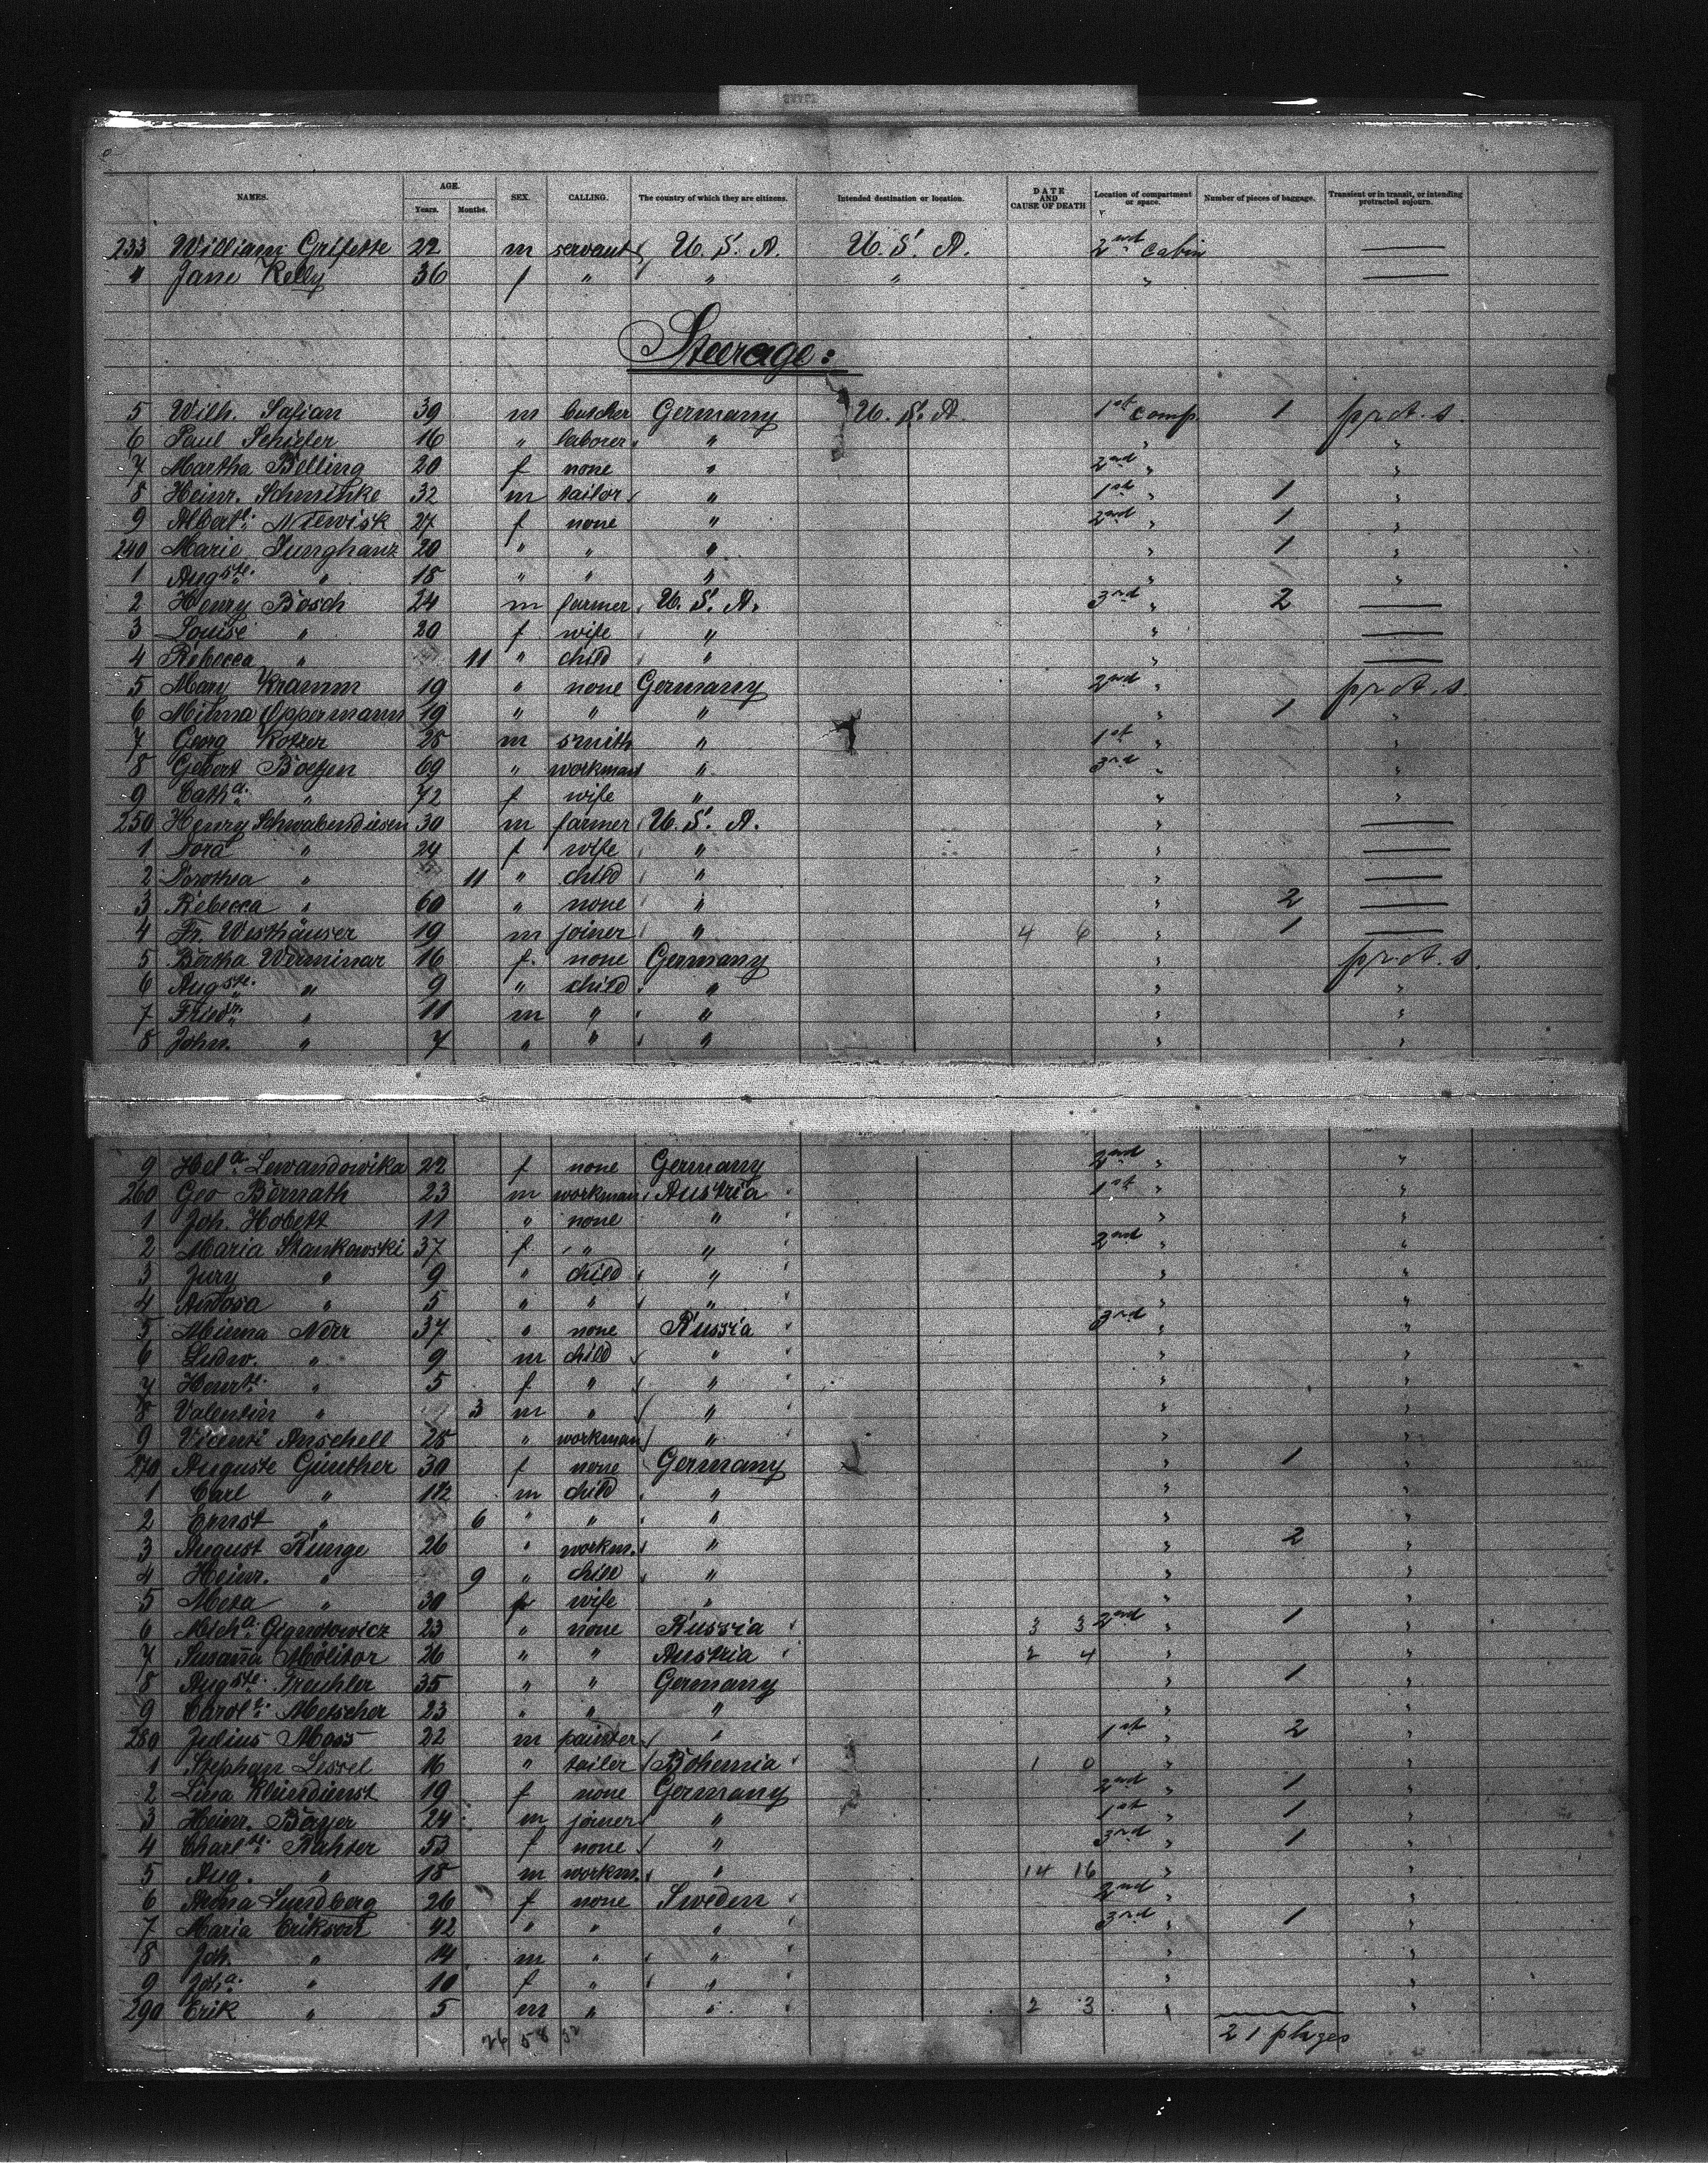 NAMES. AGE. Years. Months. SEX. CALLING. The country of which they are citizens. Intended destination or location. DATE AND CAUSE OF DEATH Location of compartment or space. Number of pieces of baggage. Transient or in transit, or intending protracted sojourn.
233 William Grifette 22 m servant U. S. A. U. S. A. 2nd cabin —
4 Jane Kelly 36 f " " " " —
Steerage:
5 Wilh. Safian 39 m butcher Germany U. S. A. 1st comp. 1 prot. s.
6 Paul Schiefer 16 " laborer " " "
7 Martha Belling 20 f none " 2nd " "
8 Heinr. Schmihke 32 m tailor " 1st " 1 "
9 Albert: Niewisk 27 f none " 2nd " 1 "
240 Marie Junghanz 20 " " " " 1 "
1 Augste. " 18 " " " " "
2 Henry Bosch 24 m farmer U. S. A. 3rd " 2 —
3 Louise " 20 f wife " " —
4 Rebecca " 11 " child " " —
5 Mary Kramm 19 " none Germany 2nd " prot. s.
6 Minna Oppermann 19 " " " " 1 "
7 Georg Kotzer 28 m smith " 1st " "
8 Gebert Boetjen 69 " workman " 3rd " "
9 Catha. " 72 f wife " " "
250 Henry Schwabendiesen 30 m farmer U. S. A. " —
1 Dora " 24 f wife " " —
2 Dorothea " 11 " child " " —
3 Rebecca " 60 " none " " 2 —
4 Fr. Westhäuser 19 m joiner " 4 6 " 1 —
5 Bertha Werminar 16 f. none Germany " prot. s.
6 Augste. " 9 " child " " "
7 Friedr. " 11 m " " " "
8 John. " 7 " " " " "
9 Hela. Lewandowska 22 f none Germany 2nd " "
260 Geo Bernath 23 m workman Austria 1st " "
1 Joh. Hobett 11 " none " " "
2 Maria Stankowski 37 f " " 2nd " "
3 Jury " 9 " child " " "
4 Antosa " 5 " " " " "
5 Minna Nerr 37 " none Russia 3rd " "
6 Ludw. " 9 m child " " "
7 Henrte. " 5 f " " " "
8 Valentin " 3 m " " " "
9 Vicenti Anschell 28 " workman " " "
270 Auguste Günther 30 f none Germany " 1 "
1 Carl " 1 1/2 m child " " "
2 Ernst " 6 " " " " "
3 August Runge 26 " workm. " " 2 "
4 Heinr. " 9 " child " " "
5 Meta " 30 f wife " " "
6 Micha. 23 " none Russia 3 3 2nd " 1 "
7 Susanna Molitor 26 " " Austria 2 4 " "
8 Augste. Treuhler 35 " " Germany " 1 "
9 Carole. Metscher 23 " " " " "
280 Julius Moss 22 m painter " 1st " 2 "
1 Stephan Lessel 16 " tailer Bohemia 1 0 " "
2 Lina Kleindienst 19 f none Germany 2nd " 1 "
3 Heinr. Berger 24 m joiner " 1st " 1 "
4 Charlte. Rahter 53 f none " 3rd " 1 "
5 Aug. " 18 m workm. " 14 16 " "
6 Anna Lundberg 26 f none Sweden 2nd " "
7 Maria Erikson 42 " " " 3rd " 1 "
8 Joh. " 14 m " " " "
9 Joha. " 10 f " " " "
290 Erik " 5 m " " 2 3 " "
26 58 32 21 pkges